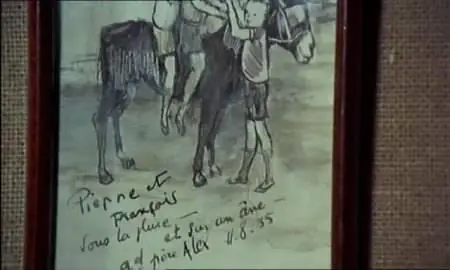 Pierre et
François
sous la pluie —
et sur un âne —
gd père Alex 11.8.35